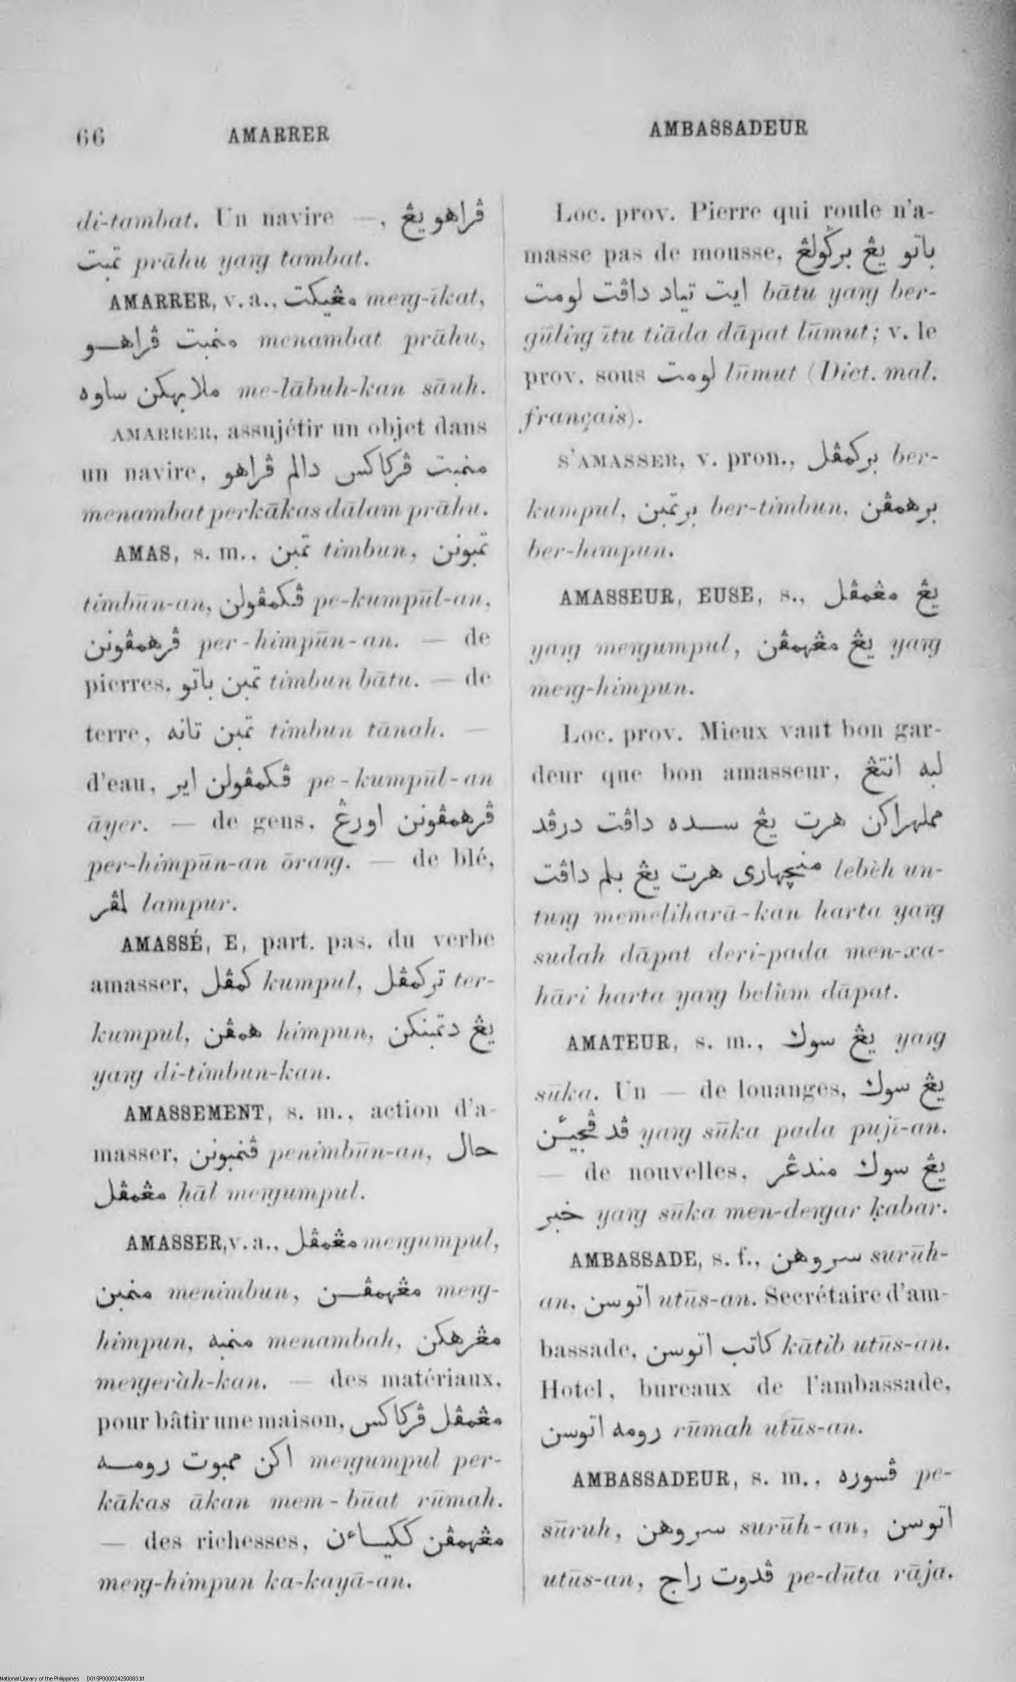 66 AMARRER AMBASSADEUR
di-tambat. Un navire —, ڤراهو يڠ
تمبت prāhu yaŋ tambat.
AMARRER, v. a., مڠيكت meŋ-īkat,
منمبت ڤراهو menambat prāhu,
ملابهكن ساوه me-lābuh-kan sāuh.
AMARRER, assujétir un objet dans
un navire, منمبت ڤركاكس دالم ڤراهو
menambat perkākas dālam prāhu.
AMAS, s. m., تمبن timbun, تمبونن
timbūn-an, ڤكمڤولن pe-kumpūl-an,
ڤرهمڤونن per-himpūn-an. — de
pierres, تمبن باتو timbun bātu. — de
terre, تمبن تانه timbun tānah. —
d'eau, ڤكمڤولن اير pe-kumpūl-an
āyer. — de gens, ڤرهمڤونن اورڠ
per-himpūn-an ōraŋ. — de blé,
لمڤر lampur.
AMASSÉ, E, part. pas. du verbe
amasser, كمڤل kumpul, تركمڤل ter-
kumpul, همڤن himpun, يڠ دتمبنكن
yaŋ di-timbun-kan.
AMASSEMENT, s. m., action d'a-
masser, ڤنمبونن penimbūn-an, حال
مڠمڤل ḥāl meŋumpul.
AMASSER, v. a., مڠمڤل meŋumpul,
منمبن menimbun, مڠهمڤن meŋ-
himpun, منمبه menambah, مڠرهكن
meŋeràh-kan. — des matériaux,
pour bâtir une maison, مڠمڤل ڤركاكس
اكن ممبوت رومه meŋumpul per-
kākas ākan mem-būat rūmah.
— des richesses, مڠهمڤن ككياءن
meŋ-himpun ka-kayā-an.
Loc. prov. Pierre qui roule n'a-
masse pas de mousse, باتو يڠ برڬولڠ
ايت تياد داڤت لومت bātu yaŋ ber-
gūliŋ ītu tiāda dāpat lūmut; v. le
prov. sous لومت lūmut (Dict. mal.
français).
S'AMASSER, v. pron., بركمڤل ber-
kumpul, برتمبن ber-timbun, برهمڤن
ber-himpun.
AMASSEUR, EUSE, s., يڠ مڠمڤل
yaŋ meŋumpul, يڠ مڠهمڤن yaŋ
meŋ-himpun.
Loc. prov. Mieux vaut bon gar-
deur que bon amasseur, لبه انتڠ
مملهراكن هرت يڠ سده داڤت درڤد
منچهاري هرت يڠ بلم داڤت lebèh un-
tuŋ memeliharā-kan harta yaŋ
sudah dāpat deri-pada men-xa-
hāri harta yaŋ belùm dāpat.
AMATEUR, s. m., يڠ سوك yaŋ
sūka. Un — de louanges, يڠ سوك
ڤد ڤجيئن yaŋ sūka pada pujī-an.
— de nouvelles, يڠ سوك مندڠر
خبر yaŋ sūka men-deŋar ḳabar.
AMBASSADE, s. f., سروهن surūh-
an, اتوسن utūs-an. Secrétaire d'am-
bassade, كاتب اتوسن kātib utūs-an.
Hotel, bureaux de l'ambassade,
رومه اتوسن rūmah utūs-an.
AMBASSADEUR, s. m., ڤسوره pe-
sūruh, سروهن surūh-an, اتوسن
utūs-an, ڤدوت راج pe-dūta rāja.
National Library of the Philippines